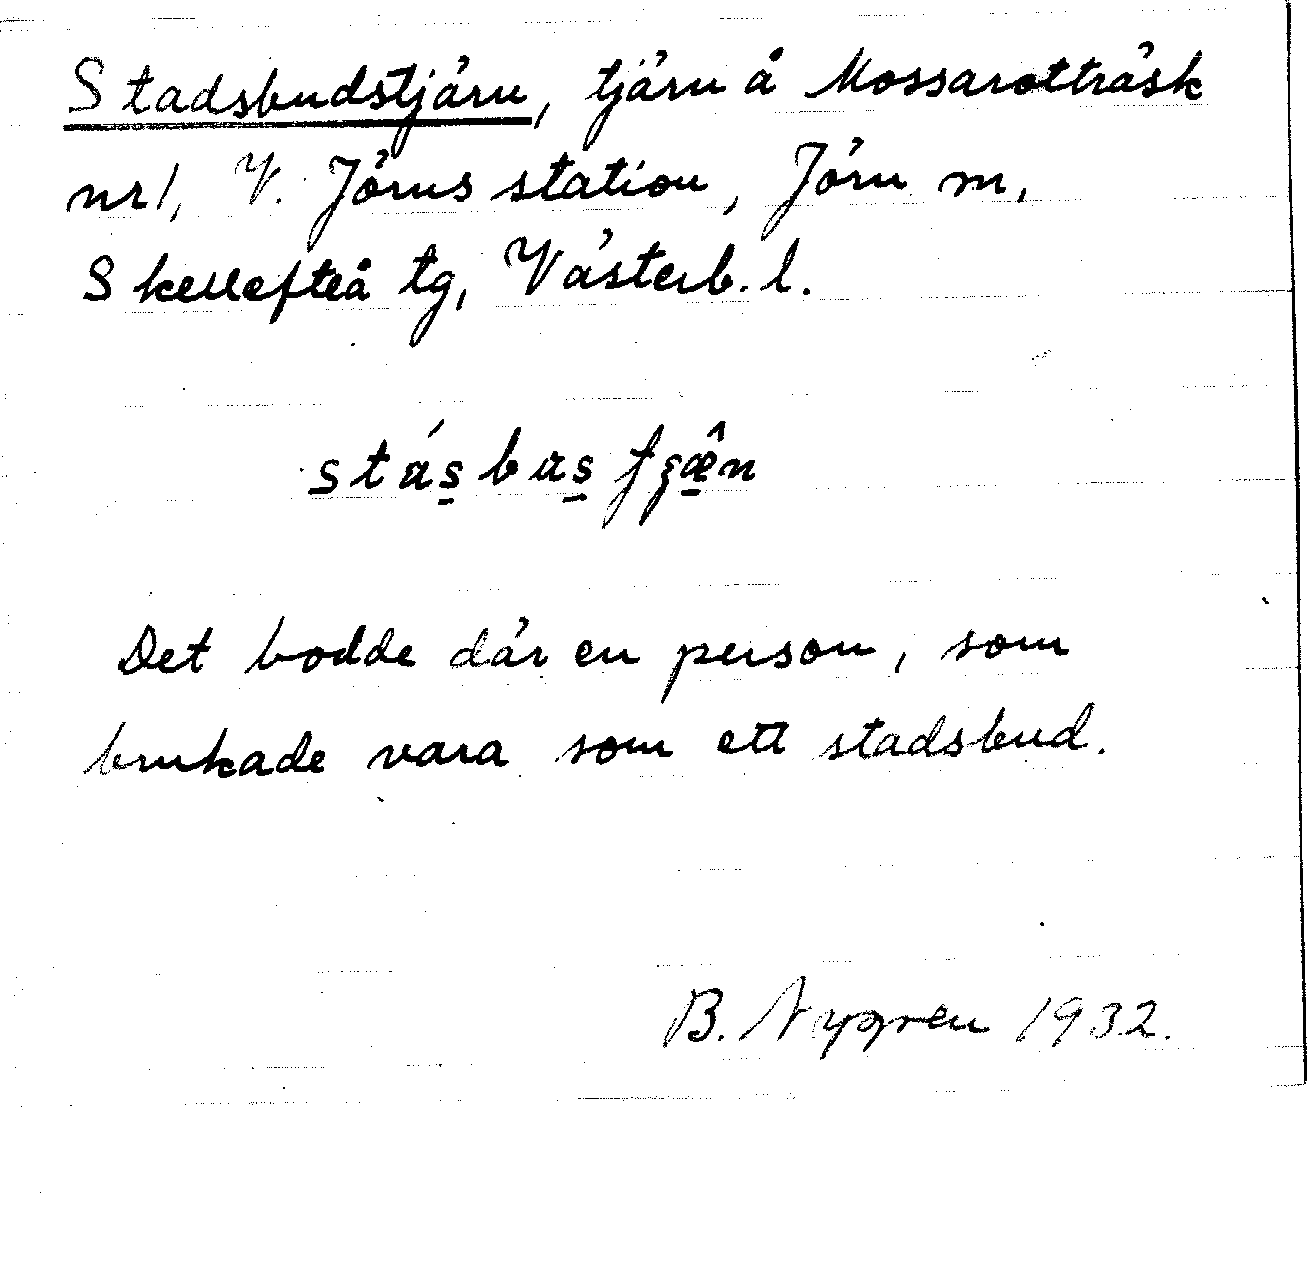 Stadsbudstjärn, tjärn å Mossarotträsk
nr 1, V. Jörns station, Jörn sn,
Skellefteå tg, Västerb. l.
Det bodde där en person, som
brukade vara som ett stadsbud.
B. Nygren 1932.